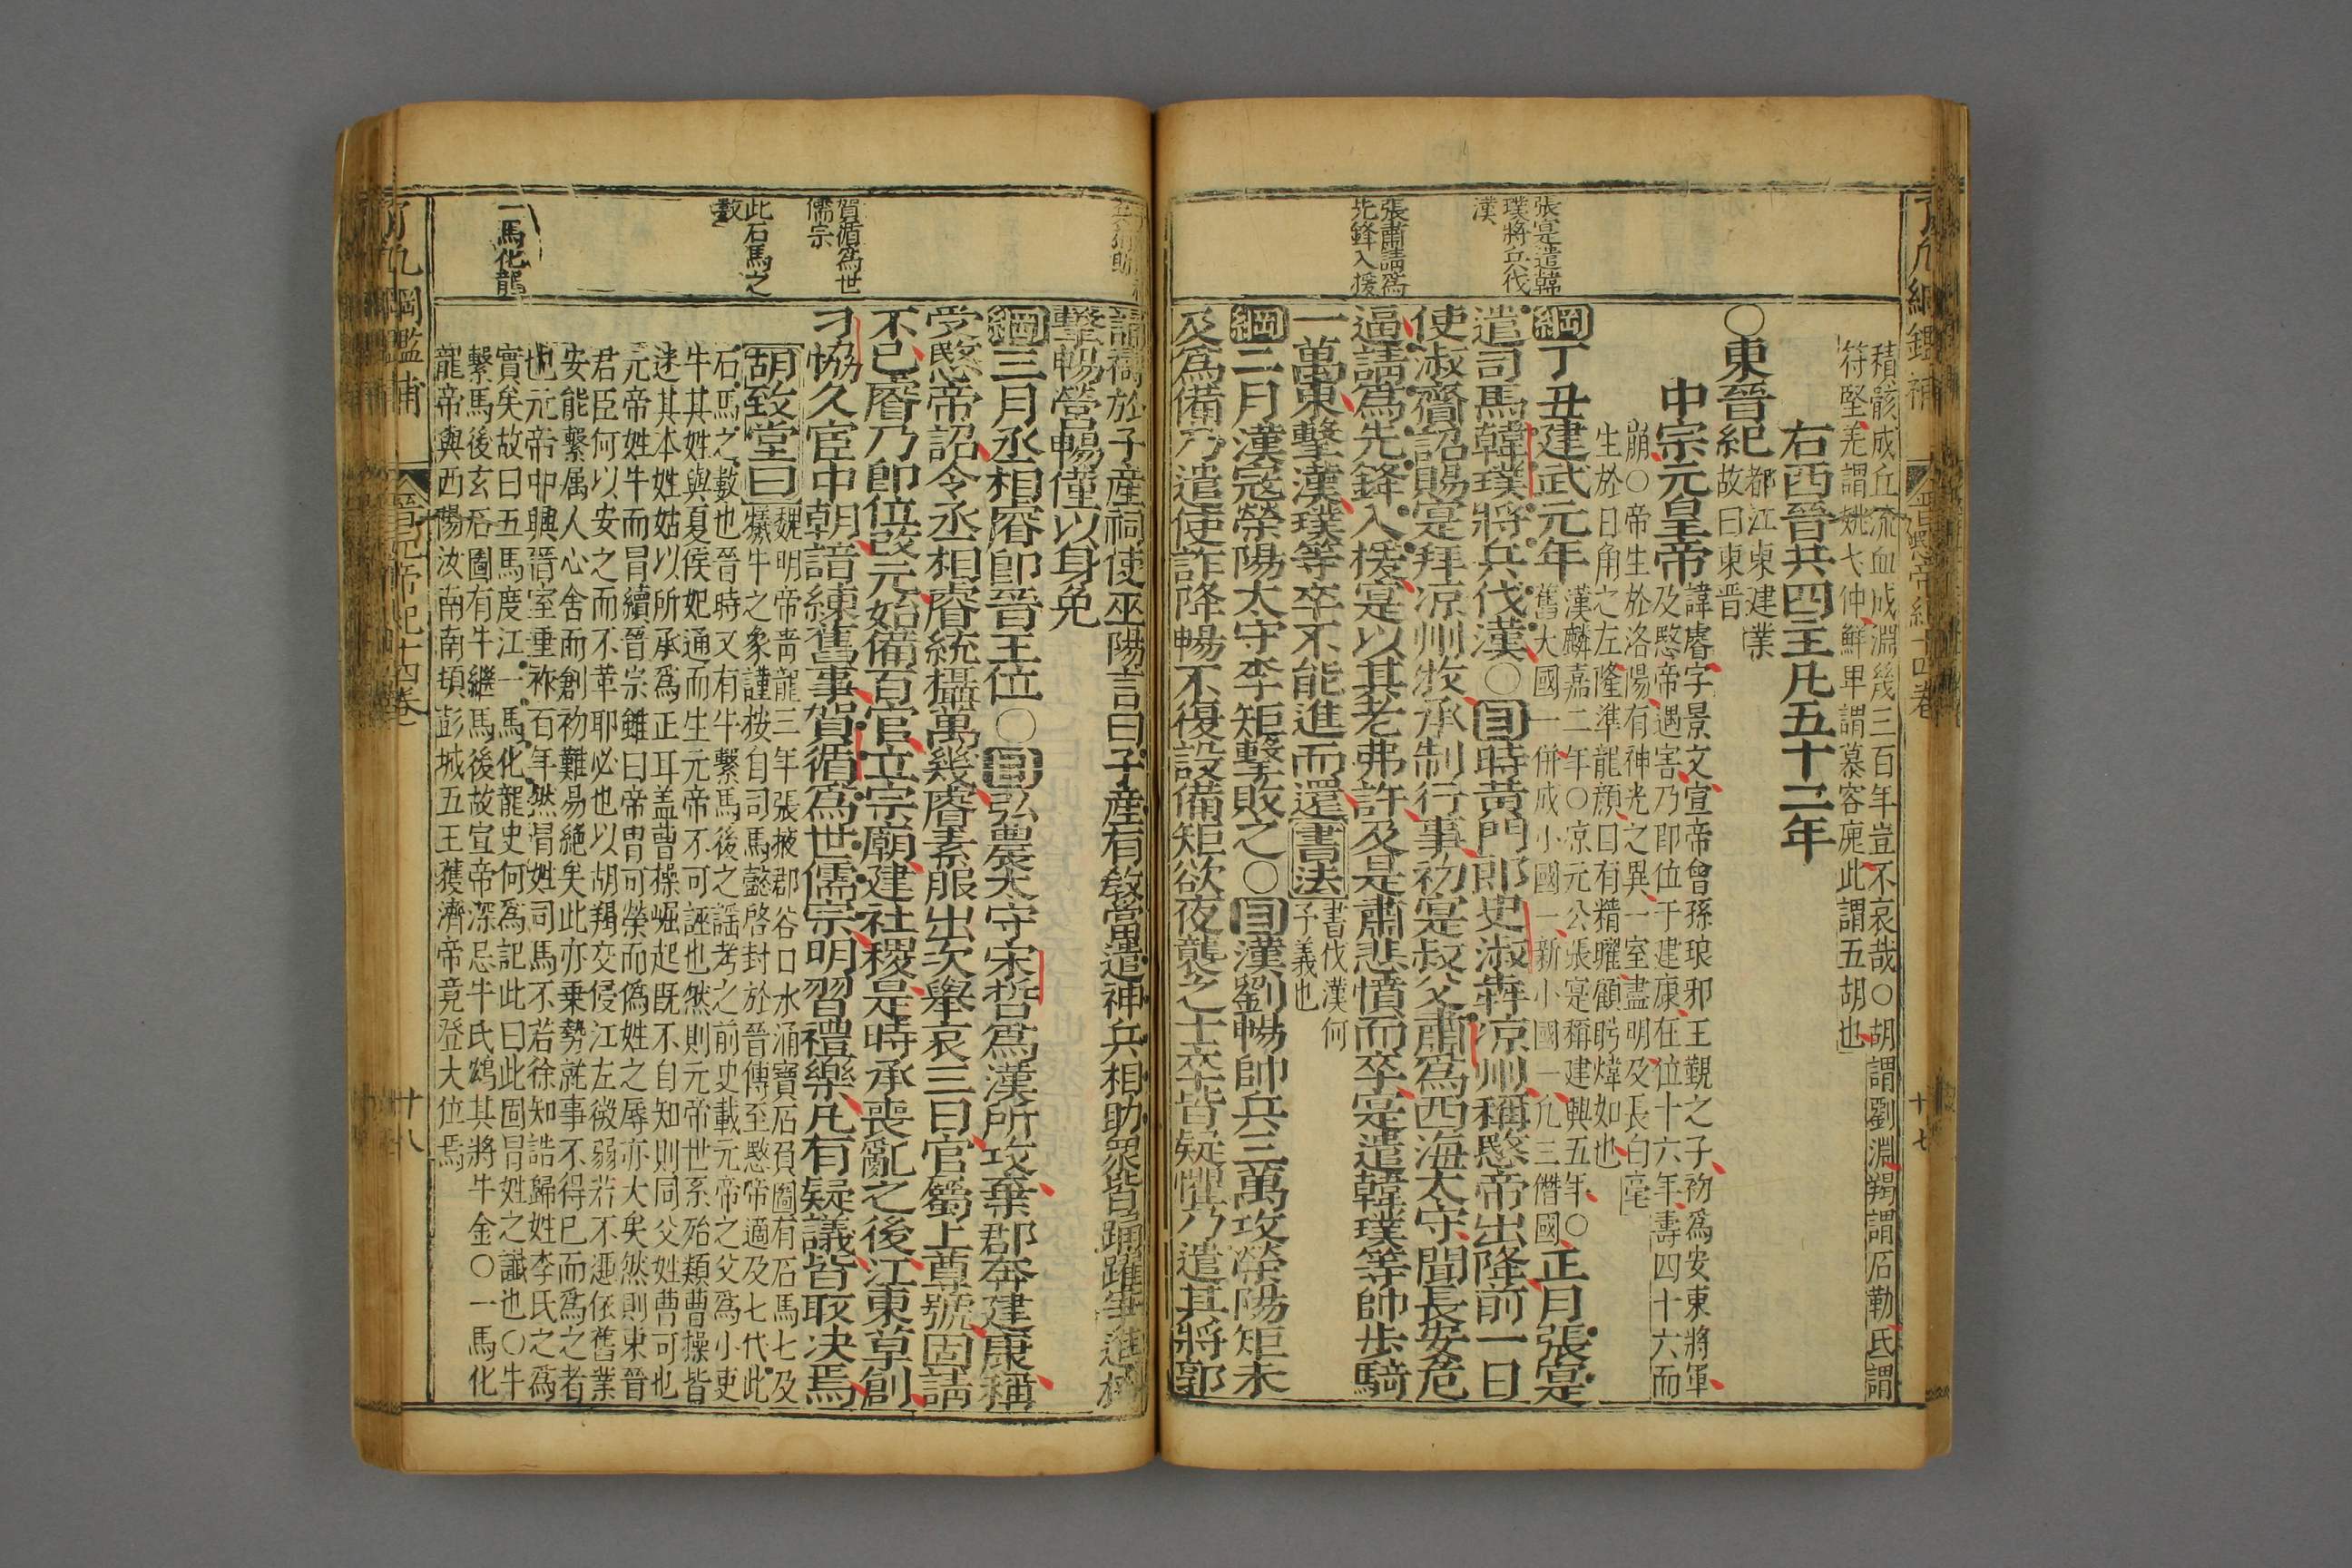 張寔遣韓
璞將兵伐
漢
張肅請爲
先鋒入援
積骸成丘流血成淵幾三百年豈不哀哉○胡謂劉淵羯謂石勒氐謂
符堅羌謂姚弋仲鮮卑謂慕容廆此謂五胡也
右西晉共四主凡五十二年
○東晉紀
都江東建業
故曰東晉
中宗元皇帝
諱睿字景文宣帝曾孫琅邪王覲之子初爲安東將軍
及愍帝遇害乃即位于建康在位十六年壽四十六而
崩○帝生於洛陽有神光之異一室盡明及長白毫
生於日角之左隆準龍顔目有精曜顧眄煒如也
綱丁丑建武元年
漢麟嘉二年○凉元公張寔稱建興五年○
舊大國一併成小國一新小國一凡三僭國
正月張寔
遣司馬韓璞將兵伐漢○目時黃門郎史淑奔凉州稱愍帝出降前一日
使淑齎詔賜寔拜凉州牧承制行事初寔叔父肅爲西海太守聞長安危
逼請爲先鋒入援寔以其老弗許及是肅悲憤而卒寔遣韓璞等帥步騎
一萬東擊漢璞等卒不能進而還書法
書伐漢何
予義也
綱二月漢寇滎陽太守李矩擊敗之○目漢劉暢帥兵三萬攻滎陽矩未
及爲備乃遣使詐降暢不復設備矩欲夜襲之士卒皆疑懼乃遣其將郭
了凡綱鑑補 晉愍帝紀十四卷 十七
賀循爲世
儒宗
此石馬之
數
一馬化龍
誦禱於子產祠使巫陽言曰子產有教當遣神兵相助眾皆踊躍爭進掩
擊暢營暢僅以身免
綱三月丞相睿即晉王位○目弘農太守宋哲爲漢所攻棄郡奔建康稱
受愍帝詔令丞相睿統攝萬幾睿素服出次舉哀三日官屬上尊號固請
不已睿乃即位改元始備百官立宗廟建社稷是時承喪亂之後江東草創
刁協久宦中朝諳練舊事賀循爲世儒宗明習禮樂凡有疑議皆取決焉
胡致堂曰
魏明帝青龍三年張掖郡谷口水涌寶石負圖有石馬七及
犧牛之象謹按自司馬懿啓封於晉傳至愍帝適及七代此
石馬之數也晉時又有牛繫馬後之謡考之前史載元帝之父爲小吏
牛其姓與夏侯妃通而生元帝不可誣也然則元帝世系殆類曹操皆
迷其本姓姑以所承爲正耳盖曹操崛起既不自知則同父姓曹可也
元帝姓牛而冒續晉宗雖曰帝冑可榮而僞姓之辱亦大矣然則東晉
君臣何以安之而不革耶必也以胡羯交侵江左微弱若不憑依舊業
安能繫属人心舍而創初難易絕矣此亦乗勢就事不得已而爲之者
也元帝中興晉室重祚百年然冒姓司馬不若徐知誥歸姓李氏之爲
實矣故曰五馬度江一馬化龍史何爲記此曰此固冒姓之讖也○牛
繫馬後玄石圖有牛繼馬後故宣帝深忌牛氏鴆其將牛金○一馬化
龍帝與西陽汝南南頓彭城五王獲濟帝竟登大位焉
了凡綱鑑補 晉元帝紀十四卷 十八